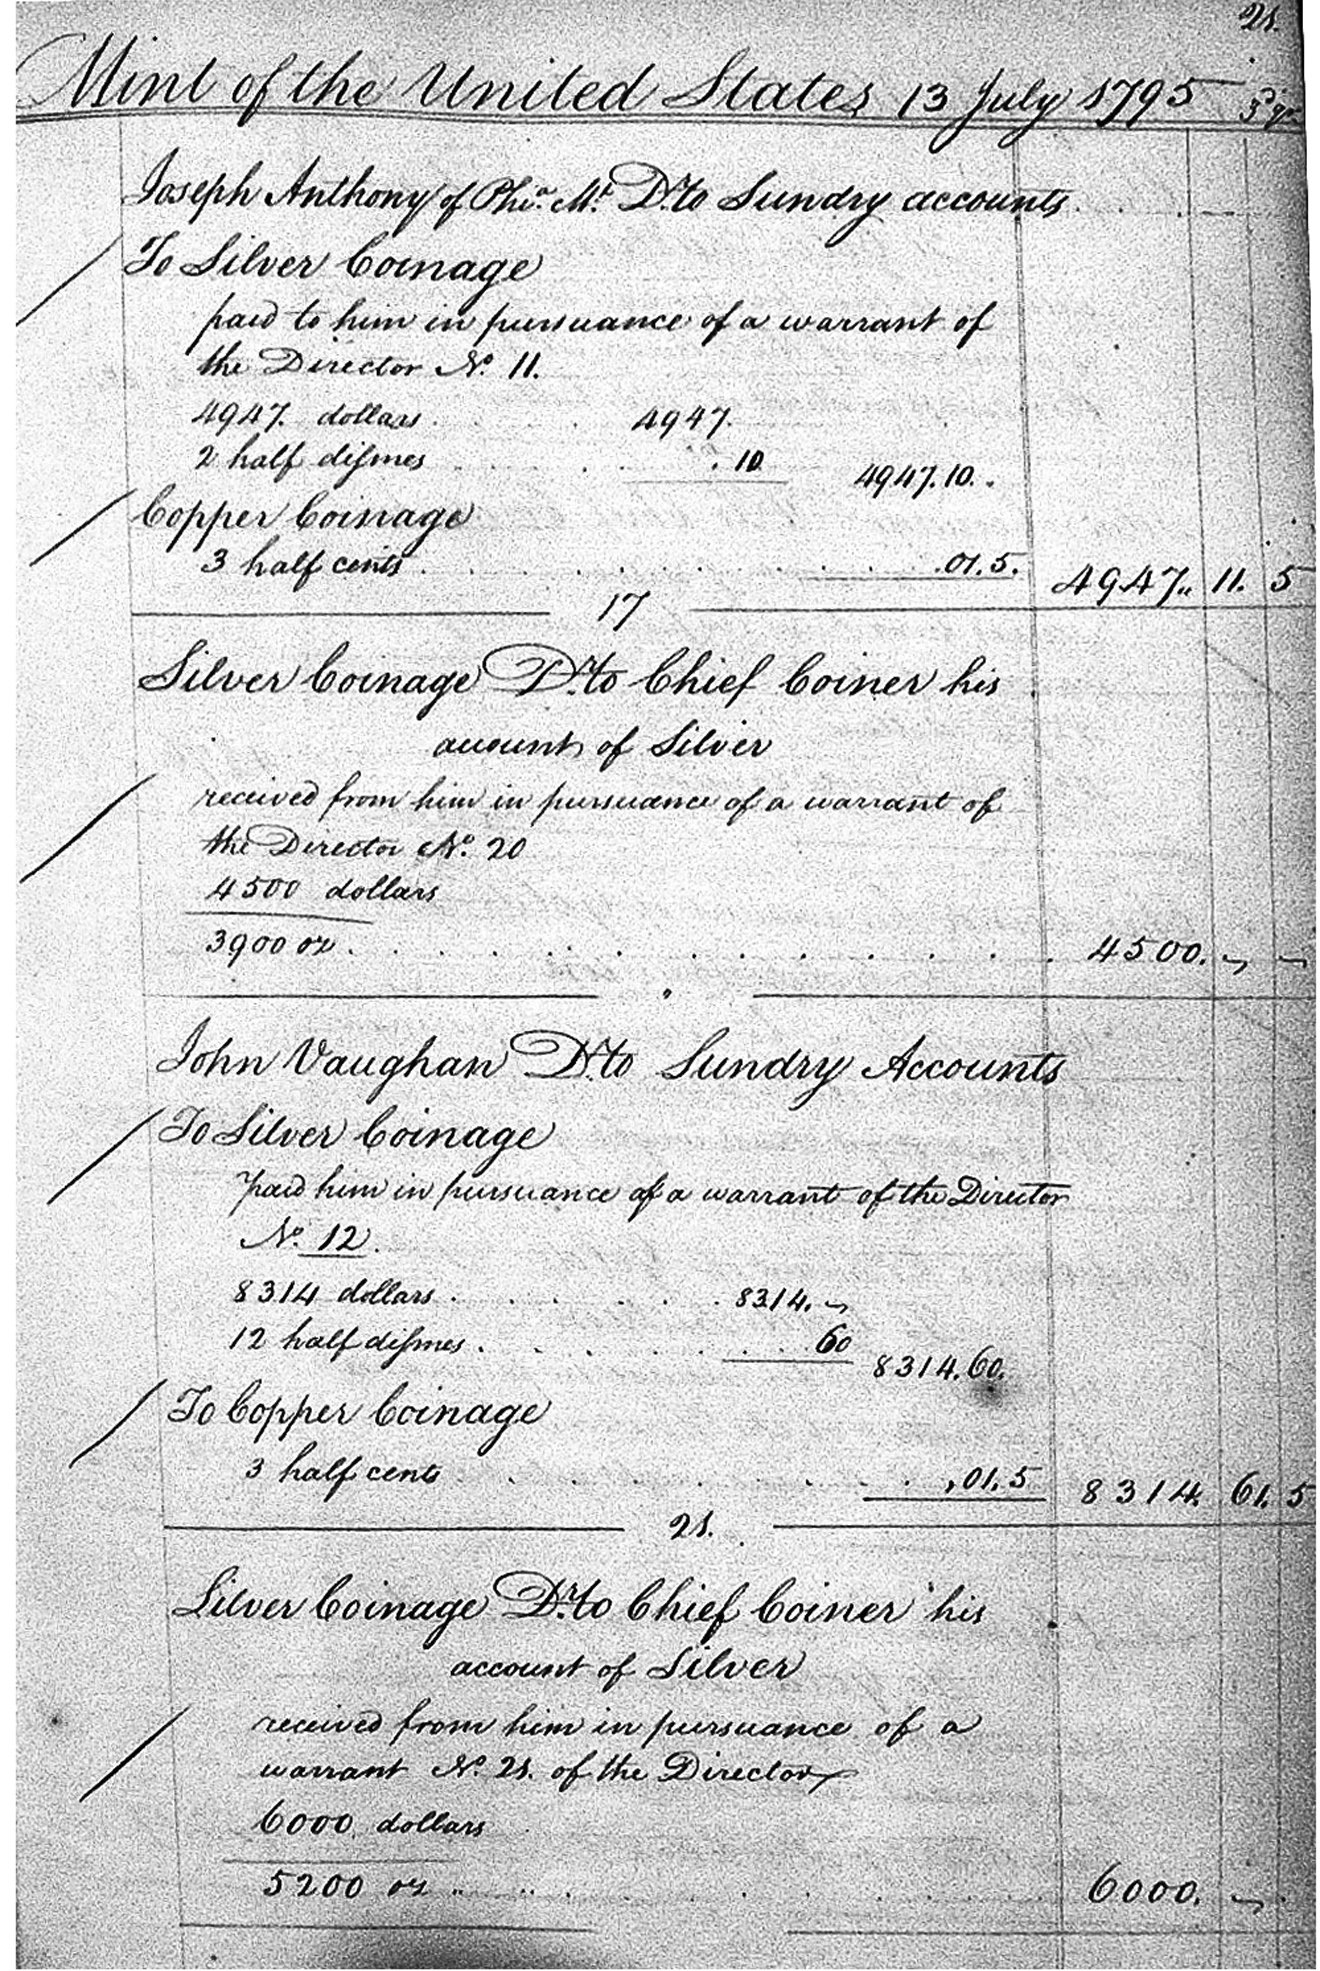 21.
Mint of the United States 13 July 1795
Joseph Anthony of Phiᵃ. Mᵗ. Dr. to Sundry accounts
To Silver Coinage
paid to him in pursuance of a warrant of
the Director No. 11.
4947. dollars . . . 4947.
2 half dismes . . . . .10 4947.10.
Copper Coinage
3 half cents . . . . . . . . . .01.5. 4947.. 11. 5
17
Silver Coinage Dr. to Chief Coiner his
account of Silver
received from him in pursuance of a warrant of
the Director No. 20
4500 dollars
3900 oz . . . . . . . . . . 4500.
John Vaughan Dr. to Sundry Accounts
To Silver Coinage
paid him in pursuance of a warrant of the Director
No. 12.
8314 dollars . . . . . . 8314.
12 half dismes . . . . . . 60 8314.60.
To Copper Coinage
3 half cents . . . . . . . . ,01.5 8314. 61. 5
21.
Silver Coinage Dr. to Chief Coiner his
account of Silver
received from him in pursuance of a
warrant No. 21. of the Director
6000 dollars
5200 oz . . . . . . . . 6000.